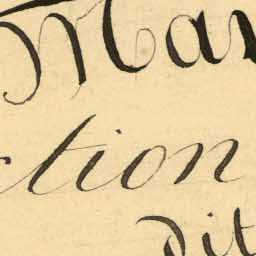 Mar
tion
dit